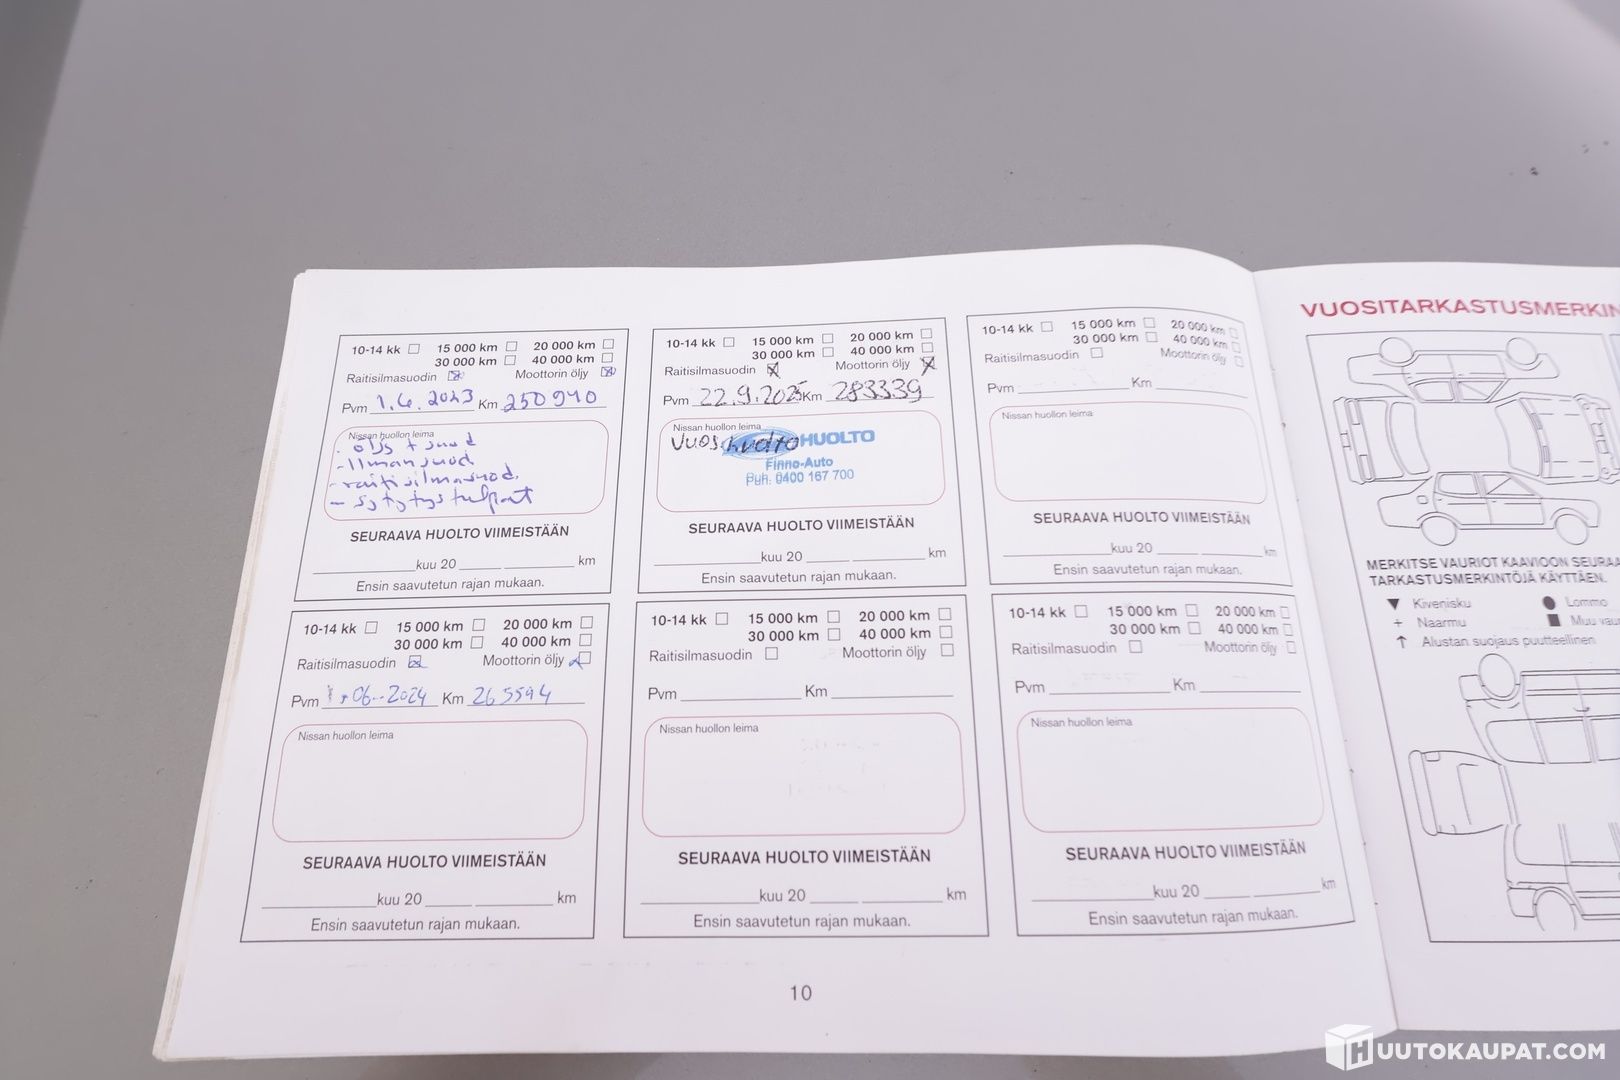 10-14 kk 15 000 km 20 000 km
30 000 km 40 000 km
Raitisilmasuodin Moottorin öljy
Pvm 1.6.2023 Km 250940
Nissan huollon leima
öljy + suod
- Ilmansuod
- raitisilmasuod.
- sytytystulpat
SEURAAVA HUOLTO VIIMEISTÄÄN
kuu 20 km
Ensin saavutetun rajan mukaan.
10-14 kk 15 000 km 20 000 km
30 000 km 40 000 km
Raitisilmasuodin Moottorin öljy
Pvm 22.9.2025 Km 283339
Nissan huollon leima
Vuosihuolto HUOLTO
Finno-Auto
Puh. 0400 167 700
SEURAAVA HUOLTO VIIMEISTÄÄN
kuu 20 km
Ensin saavutetun rajan mukaan.
10-14 kk 15 000 km 20 000 km
30 000 km 40 000 km
Raitisilmasuodin Moottorin öljy
Pvm Km
Nissan huollon leima
SEURAAVA HUOLTO VIIMEISTÄÄN
kuu 20 km
Ensin saavutetun rajan mukaan.
10-14 kk 15 000 km 20 000 km
30 000 km 40 000 km
Raitisilmasuodin Moottorin öljy
Pvm 06-2024 Km 265594
Nissan huollon leima
SEURAAVA HUOLTO VIIMEISTÄÄN
kuu 20 km
Ensin saavutetun rajan mukaan.
10-14 kk 15 000 km 20 000 km
30 000 km 40 000 km
Raitisilmasuodin Moottorin öljy
Pvm Km
Nissan huollon leima
SEURAAVA HUOLTO VIIMEISTÄÄN
kuu 20 km
Ensin saavutetun rajan mukaan.
10-14 kk 15 000 km 20 000 km
30 000 km 40 000 km
Raitisilmasuodin Moottorin öljy
Pvm Km
Nissan huollon leima
SEURAAVA HUOLTO VIIMEISTÄÄN
kuu 20 km
Ensin saavutetun rajan mukaan.
10
VUOSITARKASTUSMERKIN
MERKITSE VAURIOT KAAVIOON SEURAA
TARKASTUSMERKINTÖJÄ KÄYTTÄEN.
▼ Kivenisku ● Lommo
+ Naarmu ■ Muu vau
↑ Alustan suojaus puutteellinen
HUUTOKAUPAT.COM